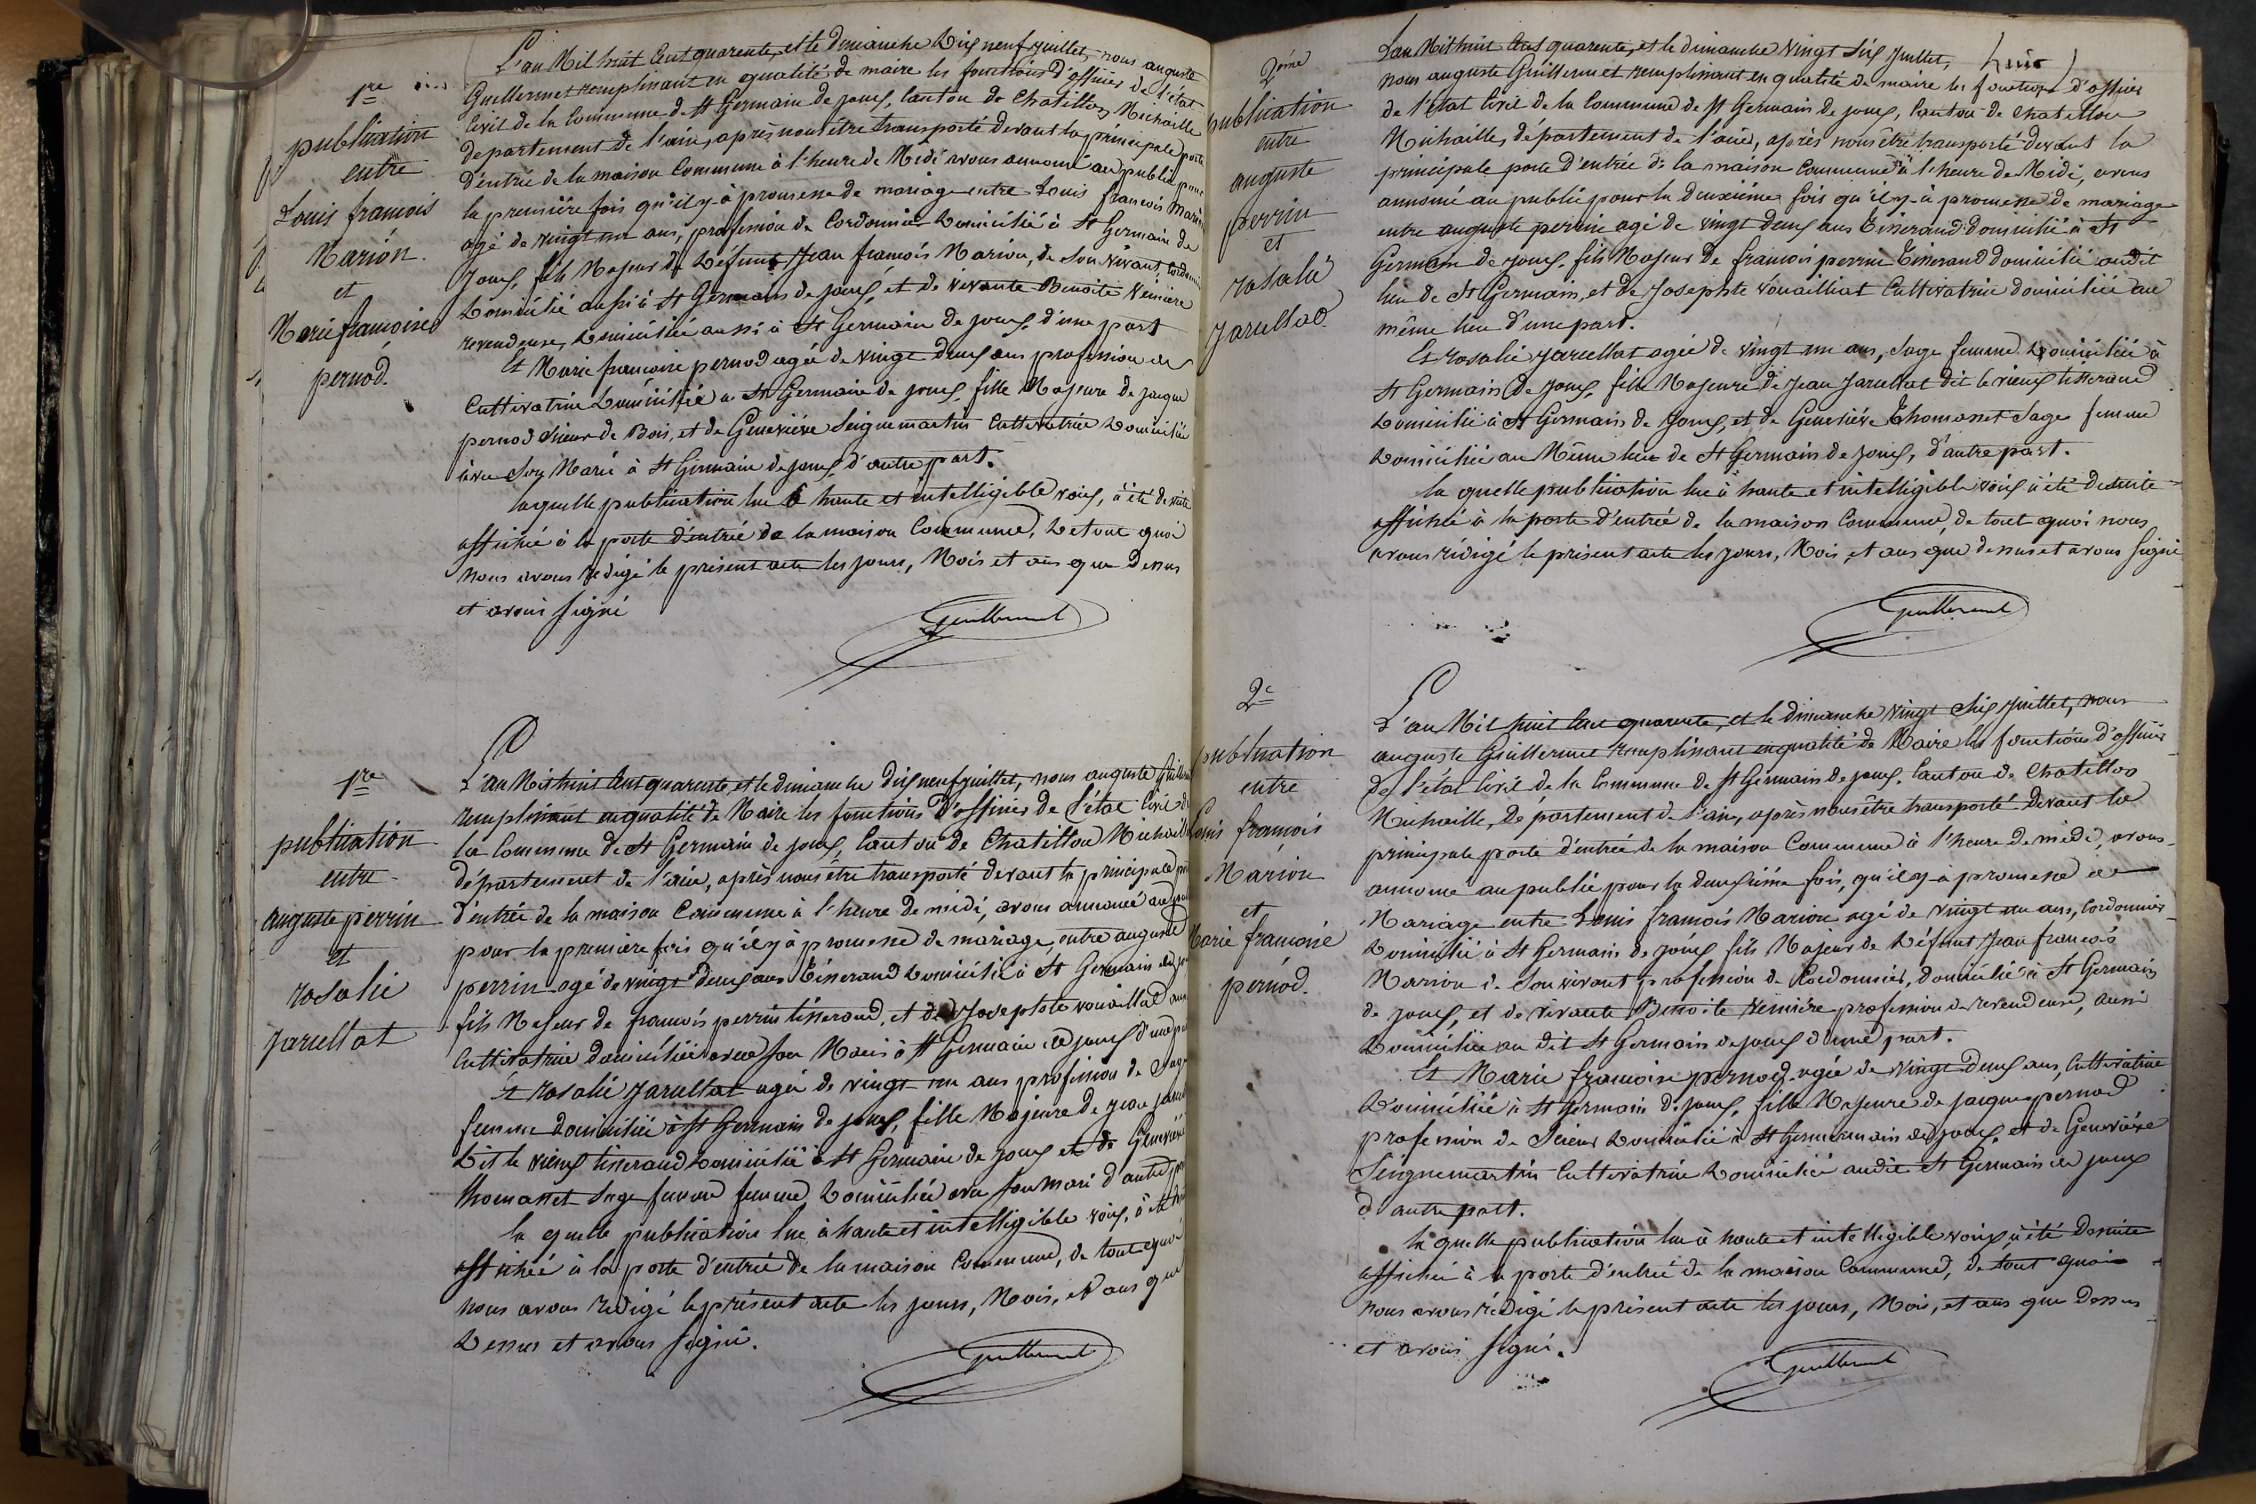 1re
publication
entre
Louis francois
Marion
et
Marie francoise
pernod.
L'an Mil huit Cent quarente, et le dimanche dix neuf juillet, nous auguste
Guillermet remplissant en qualité de maire les fonctions d'officier de l'état
Civil de la Commune de St Germain de joux, Canton de Chatillon Michaille
departement de l'ain, après nous être transporté devant la principale porte
d'entrée de la maison Commune à l'heure de Midi avons annoncé au public pour
la première fois qu'il y à promesse de mariage entre Louis francois Marion
agé de vingt un ans, profession de Cordonnier Domicilié à St Germain de
Joux, fils Majeur de Défunt Jean francois Marion, de son vivant, Cordonnier
Domicilié aussi à St Germain de joux, et de vivante Benoite Veniere
revendeuse, Domiciliée aussi à St Germain de joux, d'une part
Et Marie francoise pernod agée de vingt deux ans profession de
Cultivatrice Domiciliée à St Germain de joux, fille Majeure de jacque
pernod Scieur de Bois, et de Geneviève Seignemartin Cultivatrice Domiciliée
avec Son Mari à St Germain de joux d'autre part.
laquelle publication lue à haute et intelligible voix, à été de suite
affichée à la porte d'entrée de la maison Commune, De tout quoi
nous avons redigé le présent acte les jours, Mois et ans que Dessus
et avons signé
Guillermet
1re
publication
entre
auguste perrin
et
rosalie
Jarullat
L'an Mil huit Cent quarente, et le dimanche dix neuf juillet, nous auguste Guillermet
remplissant en qualité de Maire les fonctions D'officier de l'état Civil de
la Commune de St Germain de joux, Canton de Chatillon Michaille
département de l'ain, après nous être transporté devant la principale porte
d'entrée de la maison Commune à l'heure de midi, avons annoncé au public
pour la première fois qu'il y à promesse de mariage, entre auguste
perrin agé de vingt deux ans Tisserand Domicilié à St Germain de joux
fils Majeur de francois perrin tisserand, et de Josephte vouaillat
Cultivatrice Domiciliée avec son Mari à St Germain de joux d'une part
Et rosalie Jarullat agée de vingt un ans profession de Sage
femme Domiciliée à St Germain de joux, fille Majeure de jean
Dit le vieux tisserand Domicilié à St Germain de joux et de Geneviève
thomasset Sage femme Domiciliée avec son mari d'autre part
la quelle publication lue à haute et intelligible voix, à été
affichée à la porte d'entrée de la maison Commune, de tout quoi
nous avons redigé le présent acte les jours, Mois, et ans que
Dessus et avons signé.
Guillermet
2eme
publication
entre
auguste
perrin
et
rosalie
Jarullat
L'an Mil huit Cent quarente, et le dimanche vingt six juillet,
nous auguste Guillermet remplissant en qualité de maire les fonctions d'officier
de l'état Civil de la Commune de St Germain de joux, Canton de Chatillon
Michaille, département de l'ain, après nous être transporté devant la
principale porte d'entrée de la maison Commune à l'heure de Midi, avons
annoncé au public pour la deuxième fois qu'il y à promesse de mariage
entre auguste perrin agé de vingt deux ans Tisserand domicilié à St
Germain de joux, fils Majeur de francois perrin Tisserand domicilié audit
lieu de St Germain, et de Josephte Vouailliat Cultivatrice domiciliée au
même lieu d'une part.
Et rosalie Jarullat agée de vingt un ans, Sage femme Domiciliée à
St Germain de joux, fille Majeure de Jean Jarullat dit le vieux tisserand
Domicilié à St Germain de Joux, et de Geneviève Thomasset Sage femme
Domiciliée au Même lieu de St Germain de joux, d'autre part.
la quelle publication lue à haute et intelligible voix à été de suite
affichée à la porte d'entrée de la maison Commune, de tout quoi nous
avons rédigé le présent acte les jours, Mois, et ans que dessus et avons signé
Guillermet
2e
publication
entre
Louis francois
Marion
et
Marie francoise
pernod.
L'an Mil huit Cent quarente, et le dimanche vingt six juillet, nous
auguste Guillermet remplissant en qualité de Maire les fonctions d'officier
de l'état Civil de la Commune de St Germain de joux, Canton de Chatillon
Michaille, Département de l'ain, après nous être transporté devant la
principale porte d'entrée de la maison Commune à l'heure de midi, avons
annoncé au public pour la deuxième fois, qu'il y à promesse de
Mariage entre Louis francois Marion agé de vingt un ans, Cordonnier
Domicilié à St Germain de joux fils Majeur de Défunt Jean francois
Marion de son vivant profession de Cordonnier, domicilié à St Germain
de joux, et de vivante Benoite veniére profession de revendeuse, aussi
Domiciliée au dit St Germain de joux d'une part.
Et Marie francoise pernod agée de vingt Deux ans, Cultivatrice
Domiciliée à St Germain de joux, fille Majeure de jacque pernod
profession de Scieur Domicilié à St Germermain de joux, et de Geneviève
Seignemartin Cultivatrice Domiciliée audit St Germain de joux
d'autre part.
la quelle publication lue à haute et intelligible voix, à été De suite
affichée à la porte d'entrée de la maison Commune, de tout quoi
nous avons rédigé le présent acte les jours, Mois, et ans que Dessus
et avons signé.
Guillermet